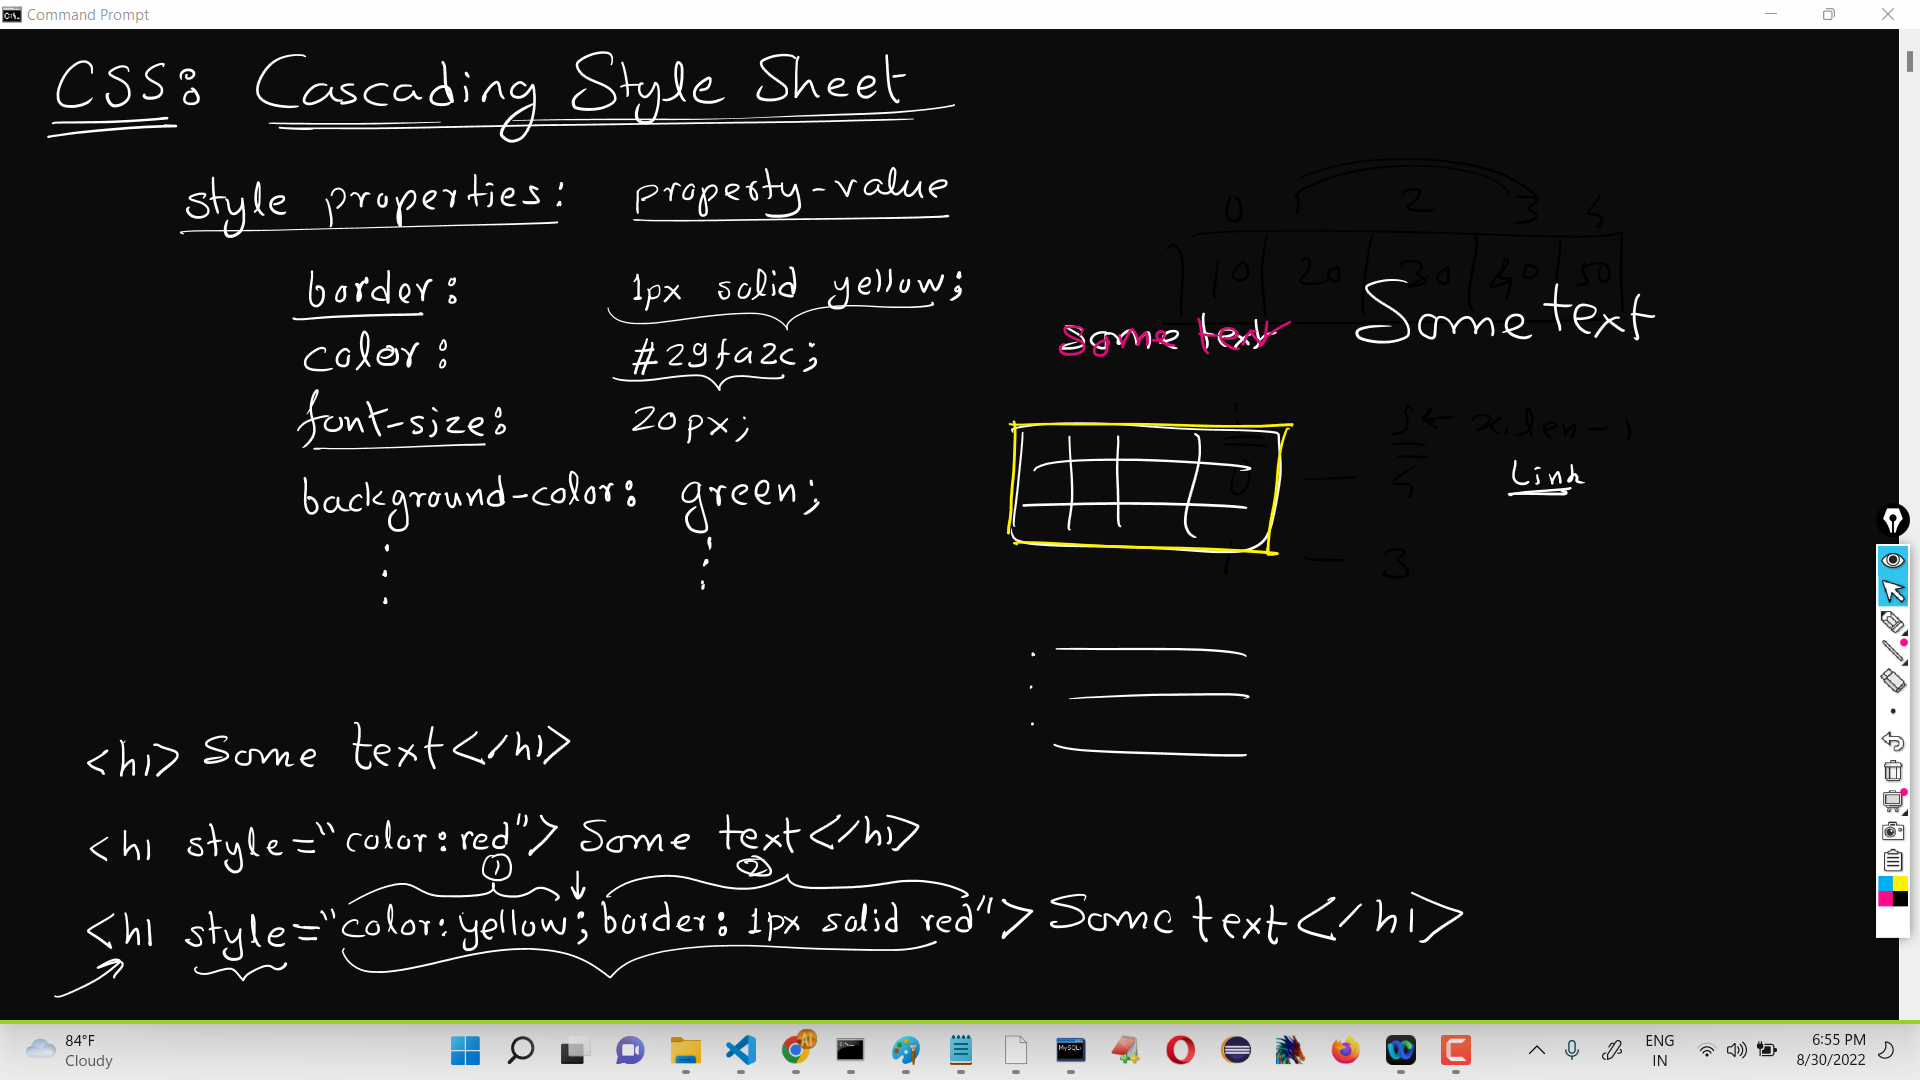 Command Prompt
CSS: Cascading Style Sheet
style properties: property-value
border: 1px solid yellow;
color: #29fa2c;
font-size: 20px;
background-color: green;
0 1 2 3 4
10 20 30 40 50
some text
Some text
i j ← x.len-1
0 — 4
1 — 3
Link
<h1> Some text</h1>
<h1 style="color:red"> Some text</h1>
1 2
<h1 style="color:yellow; border: 1px solid red"> Some text</h1>
84°F
Cloudy
AI
MySQL
ENG
IN
6:55 PM
8/30/2022